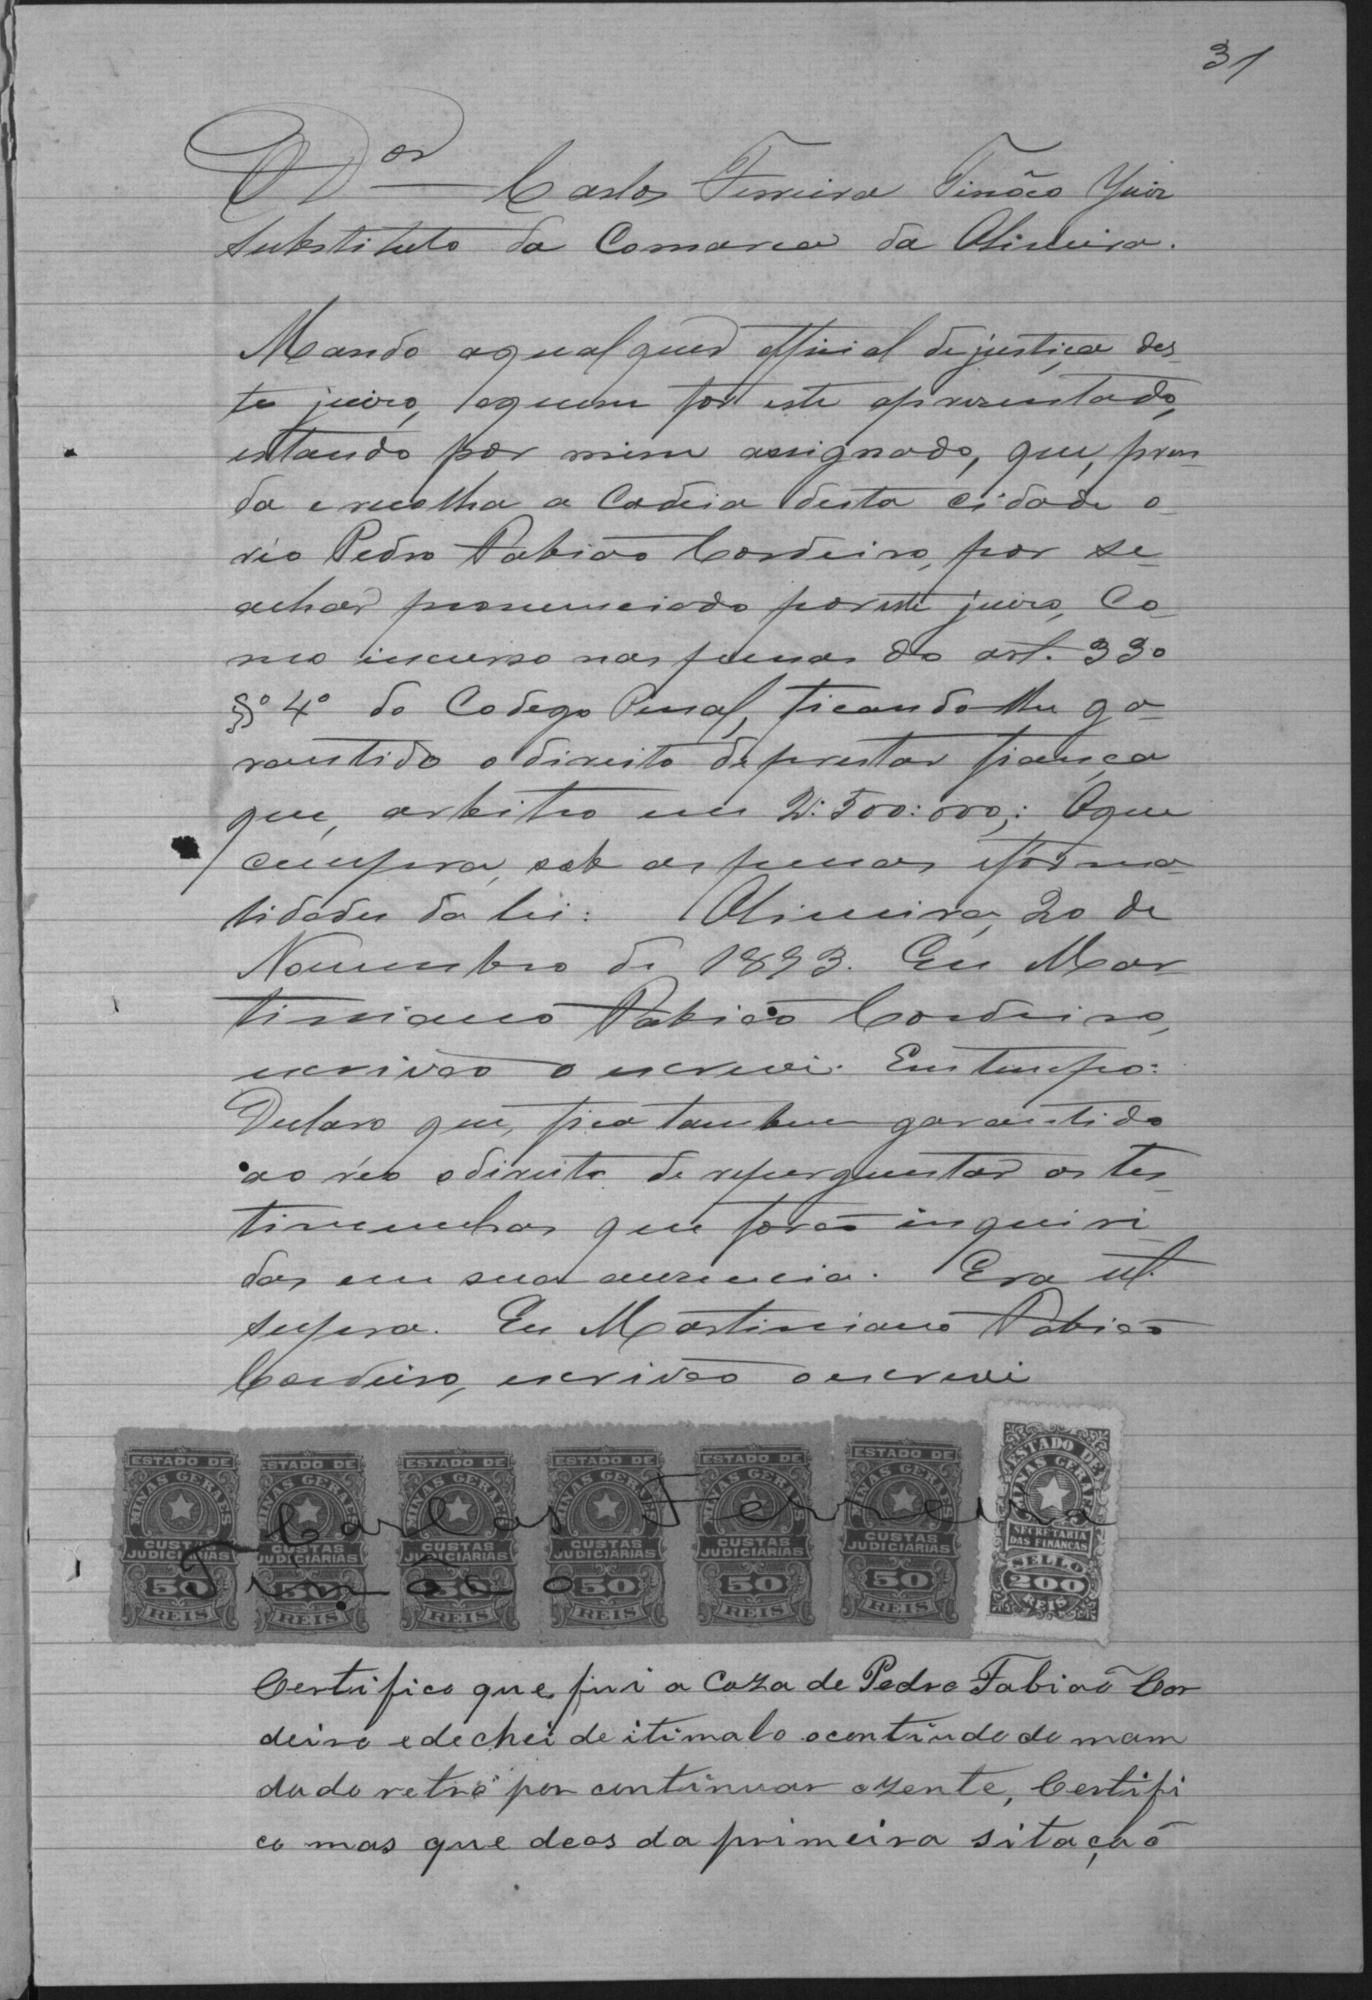 31
O Dor Carlos Ferreira Tinôco Juiz
Substituto da Comarca da Oliveira.
Mando a qualquer official de justiça des-
te juizo, a quem for este apresentado,
estando por mim assignado, que, pren-
da e recolha a Cadeia desta cidade o
réo Pedro Fabião Cordeiro, por se
achar pronunciado por este juizo, Co-
mo incurso nas penas do art. 330
§º 4º do Codego Penal, ficando-lhe ga-
rantido o direito de prestar fiança
que, arbitro em 2:500:000;: O que
cumpra, sob as penas e forma-
lidades da lei: Oliveira, 20 de
Novembro de 1893. Eu Mar-
tiniano Fabião Cordeiro,
escrivão o escrevi. Em tempo:
Declaro que, fica tambem garantido
ao réo o direito de reperguntar as tes-
timunhas que forão inquiri-
das em sua auzencia. Era ut
supra. Eu Martiniano Fabião
Cordeiro, escrivão o escrevi
ESTADO DE MINAS GERAES CUSTAS JUDICIARIAS 50 REIS
ESTADO DE MINAS GERAES CUSTAS JUDICIARIAS 50 REIS
ESTADO DE MINAS GERAES CUSTAS JUDICIARIAS 50 REIS
ESTADO DE MINAS GERAES CUSTAS JUDICIARIAS 50 REIS
ESTADO DE MINAS GERAES CUSTAS JUDICIARIAS 50 REIS
ESTADO DE MINAS GERAES CUSTAS JUDICIARIAS 50 REIS
ESTADO DE MINAS GERAES SECRETARIA DAS FINANCAS SELLO 200 REIS
Carlos Ferreira
Tinôco
Certifico que fui a Caza de Pedro Fabiaõ Cor
deiro e dechei de itimalo o contiudo do mam
dado retro por continuar azente, Certifi
co mas que deos da primeira sitaçaõ